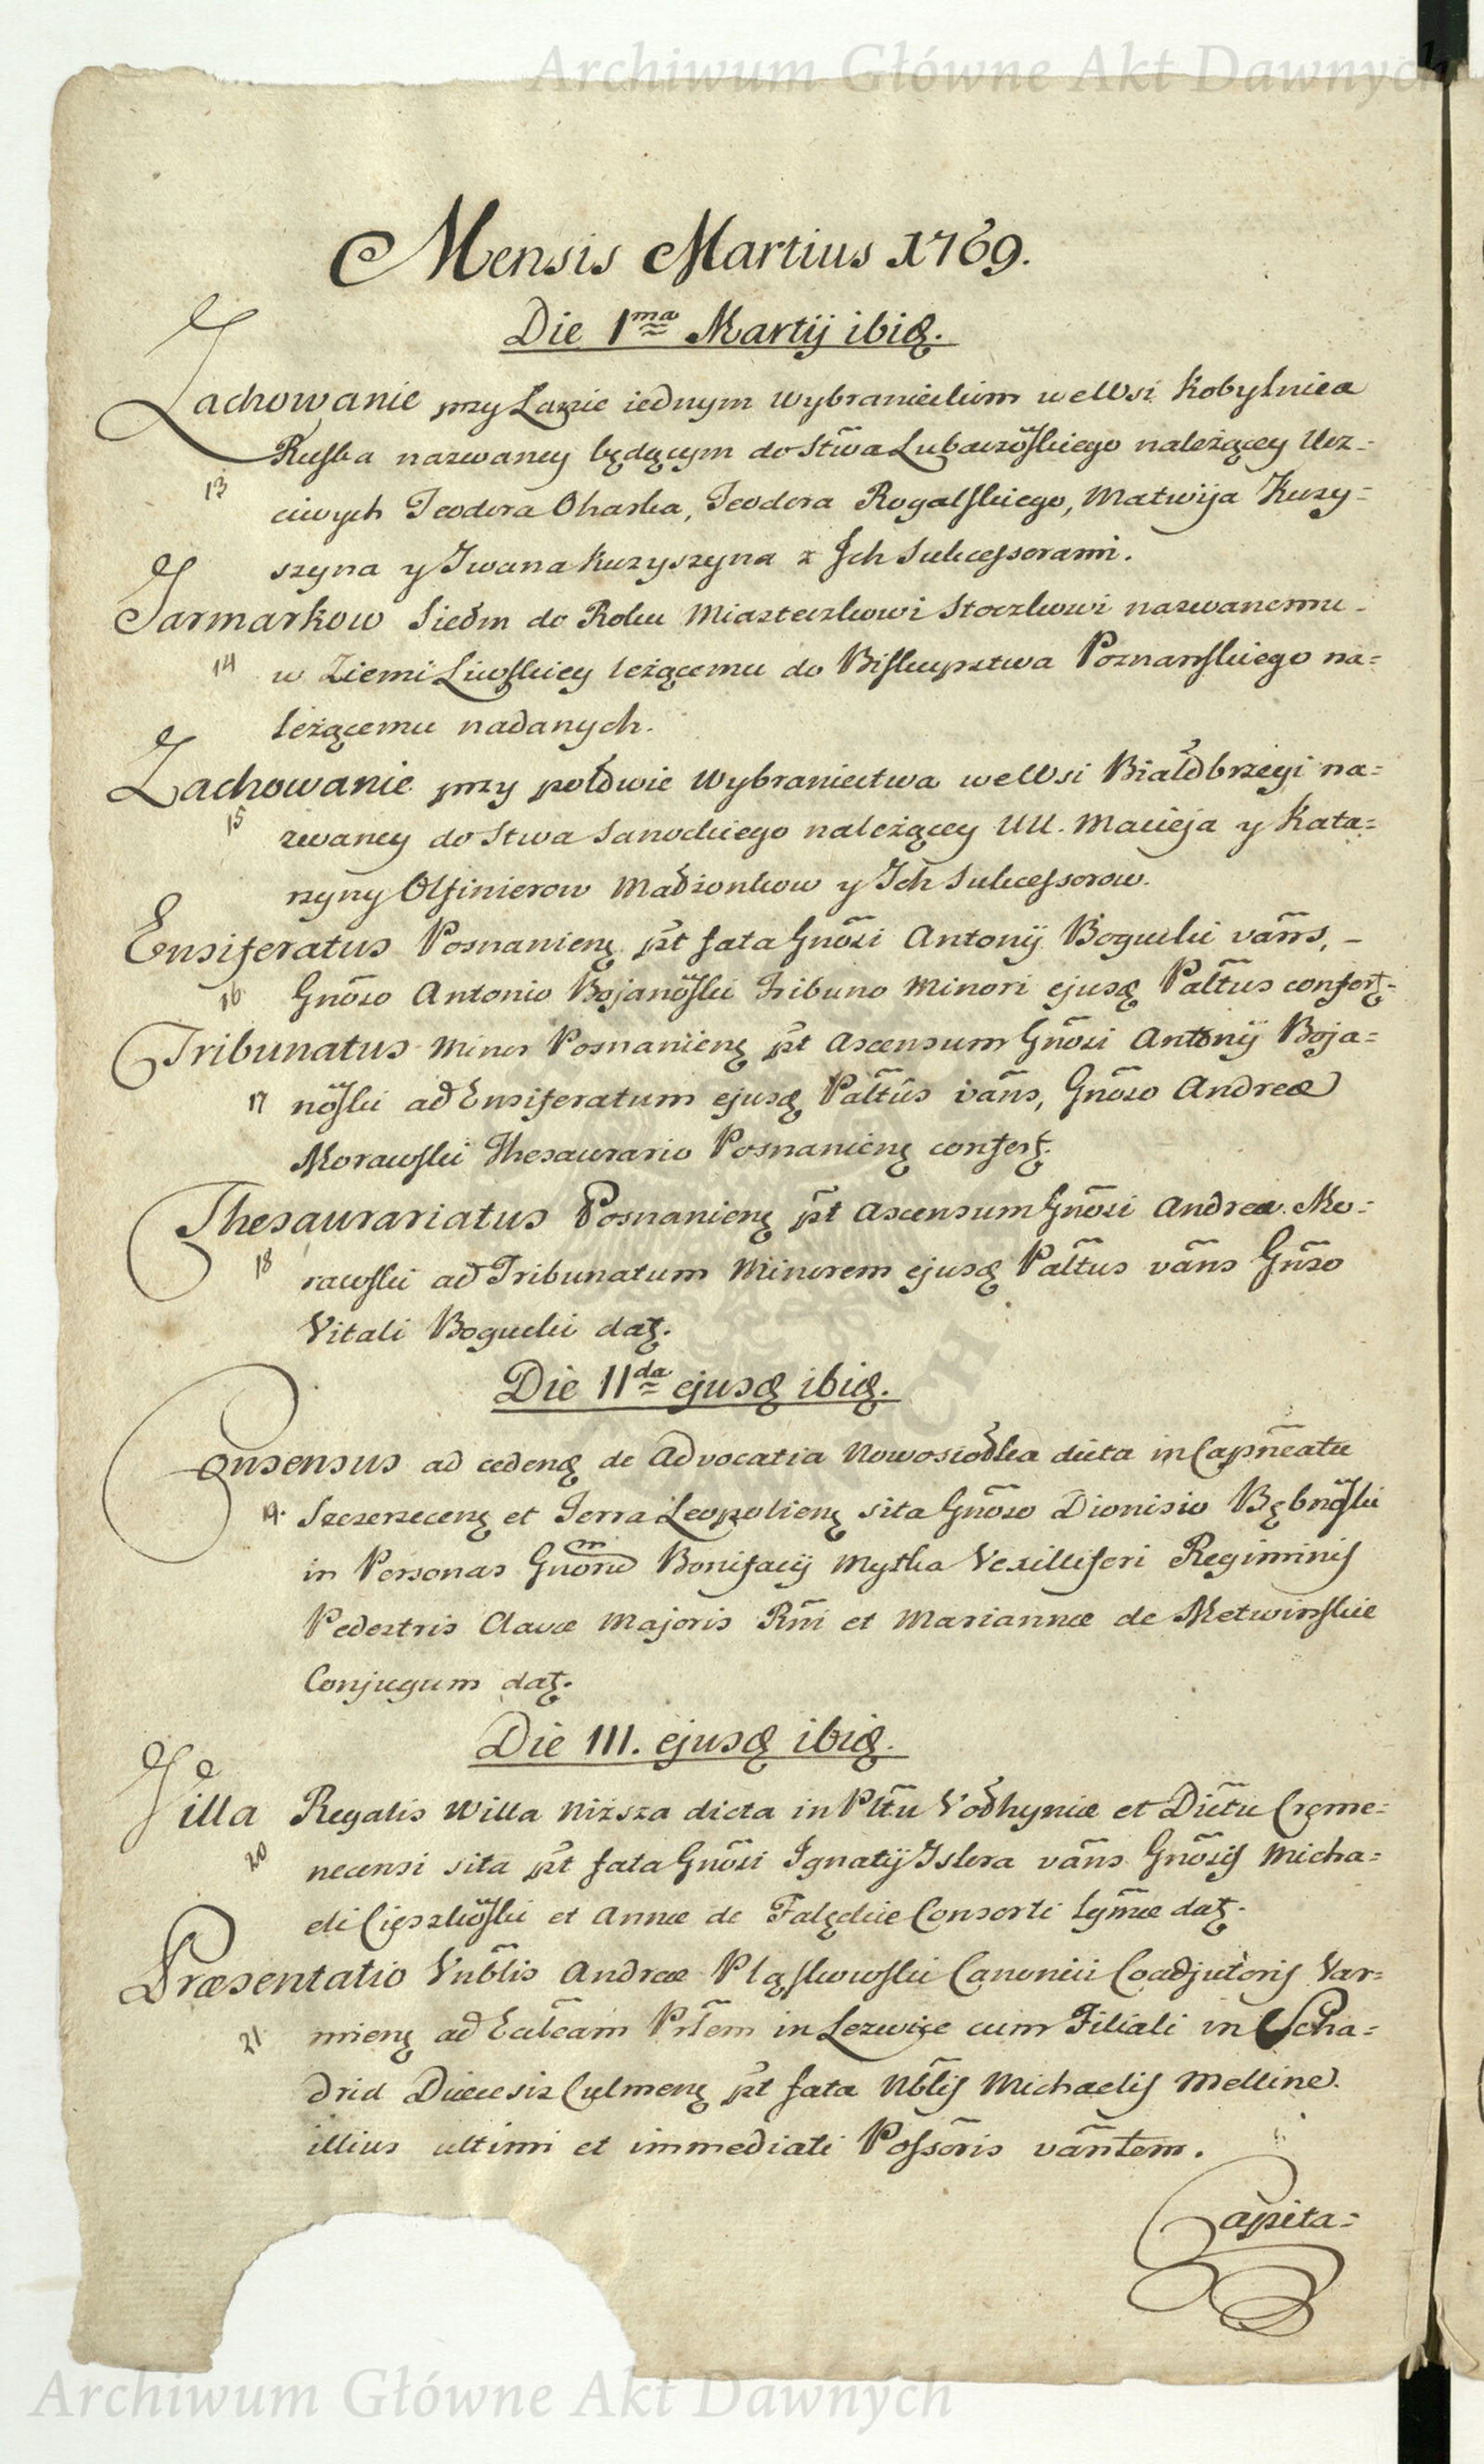 Archiwum Główne Akt Dawnych
Mensis Martius 1769.
Die 1ma Martij ibid.
Zachowanie przy Łanie iednym Wybranieckim we Wsi Kobylnica
13 Ruska nazwaney będącym do Stwa Lubaczoskiego należącey Ucz=
ciwych Teodora Oharka, Teodora Rogalskiego, Matwija Kuzy=
szyna y Iwana Kuzyszyna z Ich Sukcessorami.
Jarmarkow Siedm do Roku Miasteczkowi Stoczkowi nazwanemu
14 w Ziemi Liwskiey leżącemu do Biskupstwa Poznanskiego na=
leżącemu nadanych.
Zachowanie przy połowie Wybraniectwa we Wsi Białobrzegi na=
15 zwaney do Stwa Sanockiego należącey UU. Macieja y Kata=
rzyny Olfinierow Małżonkow y Ich Sukcessorow.
Ensiferatus Posnanien pt fata Gnosi Antonij Bogucki vans,
16 Gnoso Antonio Bojanoski Tribuno Minori ejusd Paltus confert.
Tribunatus Minor Posnanien pt Ascensum Gnosi Antonij Boja=
17 noski ad Ensiferatum ejusd Paltus vans, Gnoso Andreæ
Morawski Thesaurario Posnanien confert.
Thesaurariatus Posnanien pt Ascensum Gnosi Andreæ Mo=
18 rawski ad Tribunatum Minorem ejusd Paltus vans Gnoso
Vitali Bogucki dat.
Die IIda ejusd ibid.
Consensus ad cedend de Advocatia Nowosiołka dicta in Capneatu
19. Szczerzecen et Terra Leopolien sita Gnoso Dionisio Bębnoski
in Personas Gnorum Bonifacij Mytka Vexilliferi Regiminis
Pedestris Clavæ Majoris Rni et Mariannæ de Metwinskie
Conjugum dat.
Die III. ejusd ibid.
Villa Regalis Willa Niższa dicta in Pltu Vołhyniæ et Dictu Creme=
20 necensi sita pt fata Gnosi Ignatij Islera vans Gnosis Micha=
eli Cięszkoski et Annæ de Falęckie Consorti lgmæ dat.
Præsentatio Vnblis Andreæ Pląskowski Canonici Coadjutoris Var=
21 mien ad Ecleam Prlem in Lezwice cum Filiali in Scha=
drid Diæcesis Culmen pt fata Nblis Michaelis Melline
illius ultimi et immediati Possoris vantem.
Capita=
Archiwum Główne Akt Dawnych